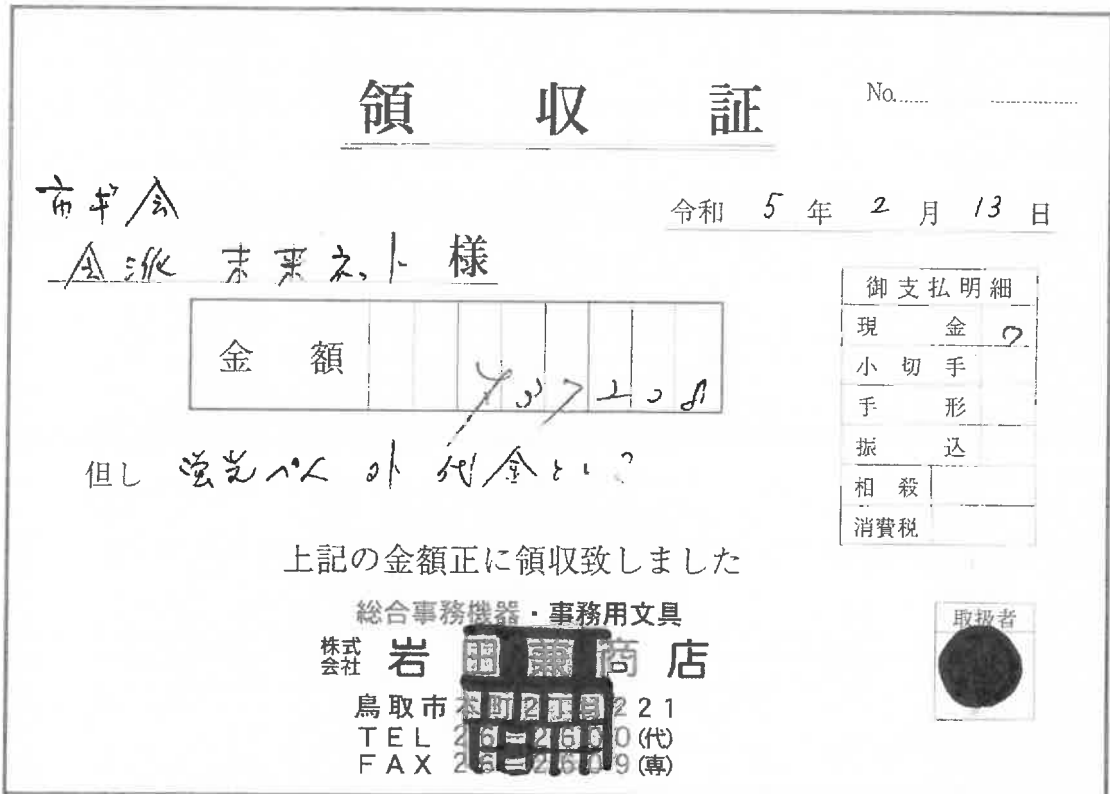 領収証
No.
市ギ会
令和 5 年 2 月 13 日
会派 未来ネット 様
金額
但し 蛍光ペン 外 代金として
御支払明細
現金
小切手
手形
振込
相殺
消費税
上記の金額正に領収致しました
総合事務機器・事務用文具
株式会社 岩田兼商店
鳥取市本町2丁目221
TEL 26-2600(代)
FAX 26-2609(専)
取扱者